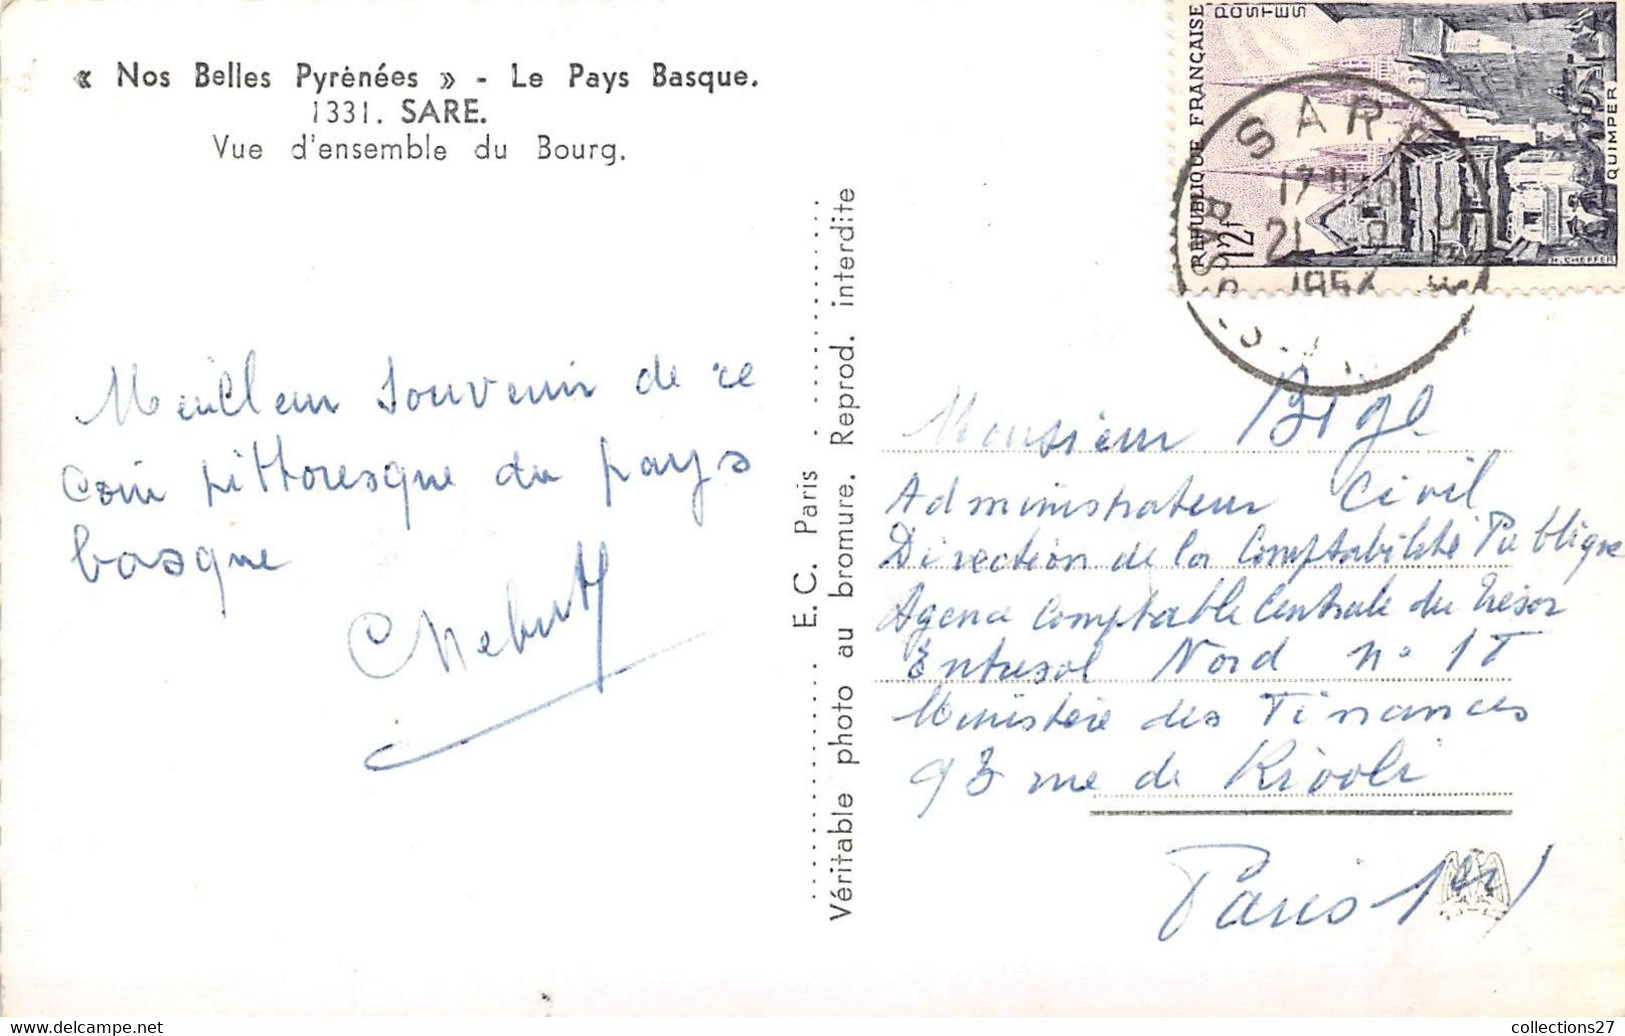 « Nos Belles Pyrénées » - Le Pays Basque.
1331. SARE.
Vue d'ensemble du Bourg.
Meilleur souvenir de ce
coin pittoresque du pays
basque
E. C. Paris
Véritable photo au bromure. Reprod. interdite
POSTES
REPUBLIQUE FRANÇAISE
12f
QUIMPER
H. CHEFFER
SARE
17 H
21 -9
BASSES
Monsieur Bizel
Administrateur Civil
Direction de la Comptabilité Publique
Agence Comptable Centrale du Trésor
Entresol Nord n° 1T
Ministère des Finances
93 rue de Rivoli
Paris 1er
collections27